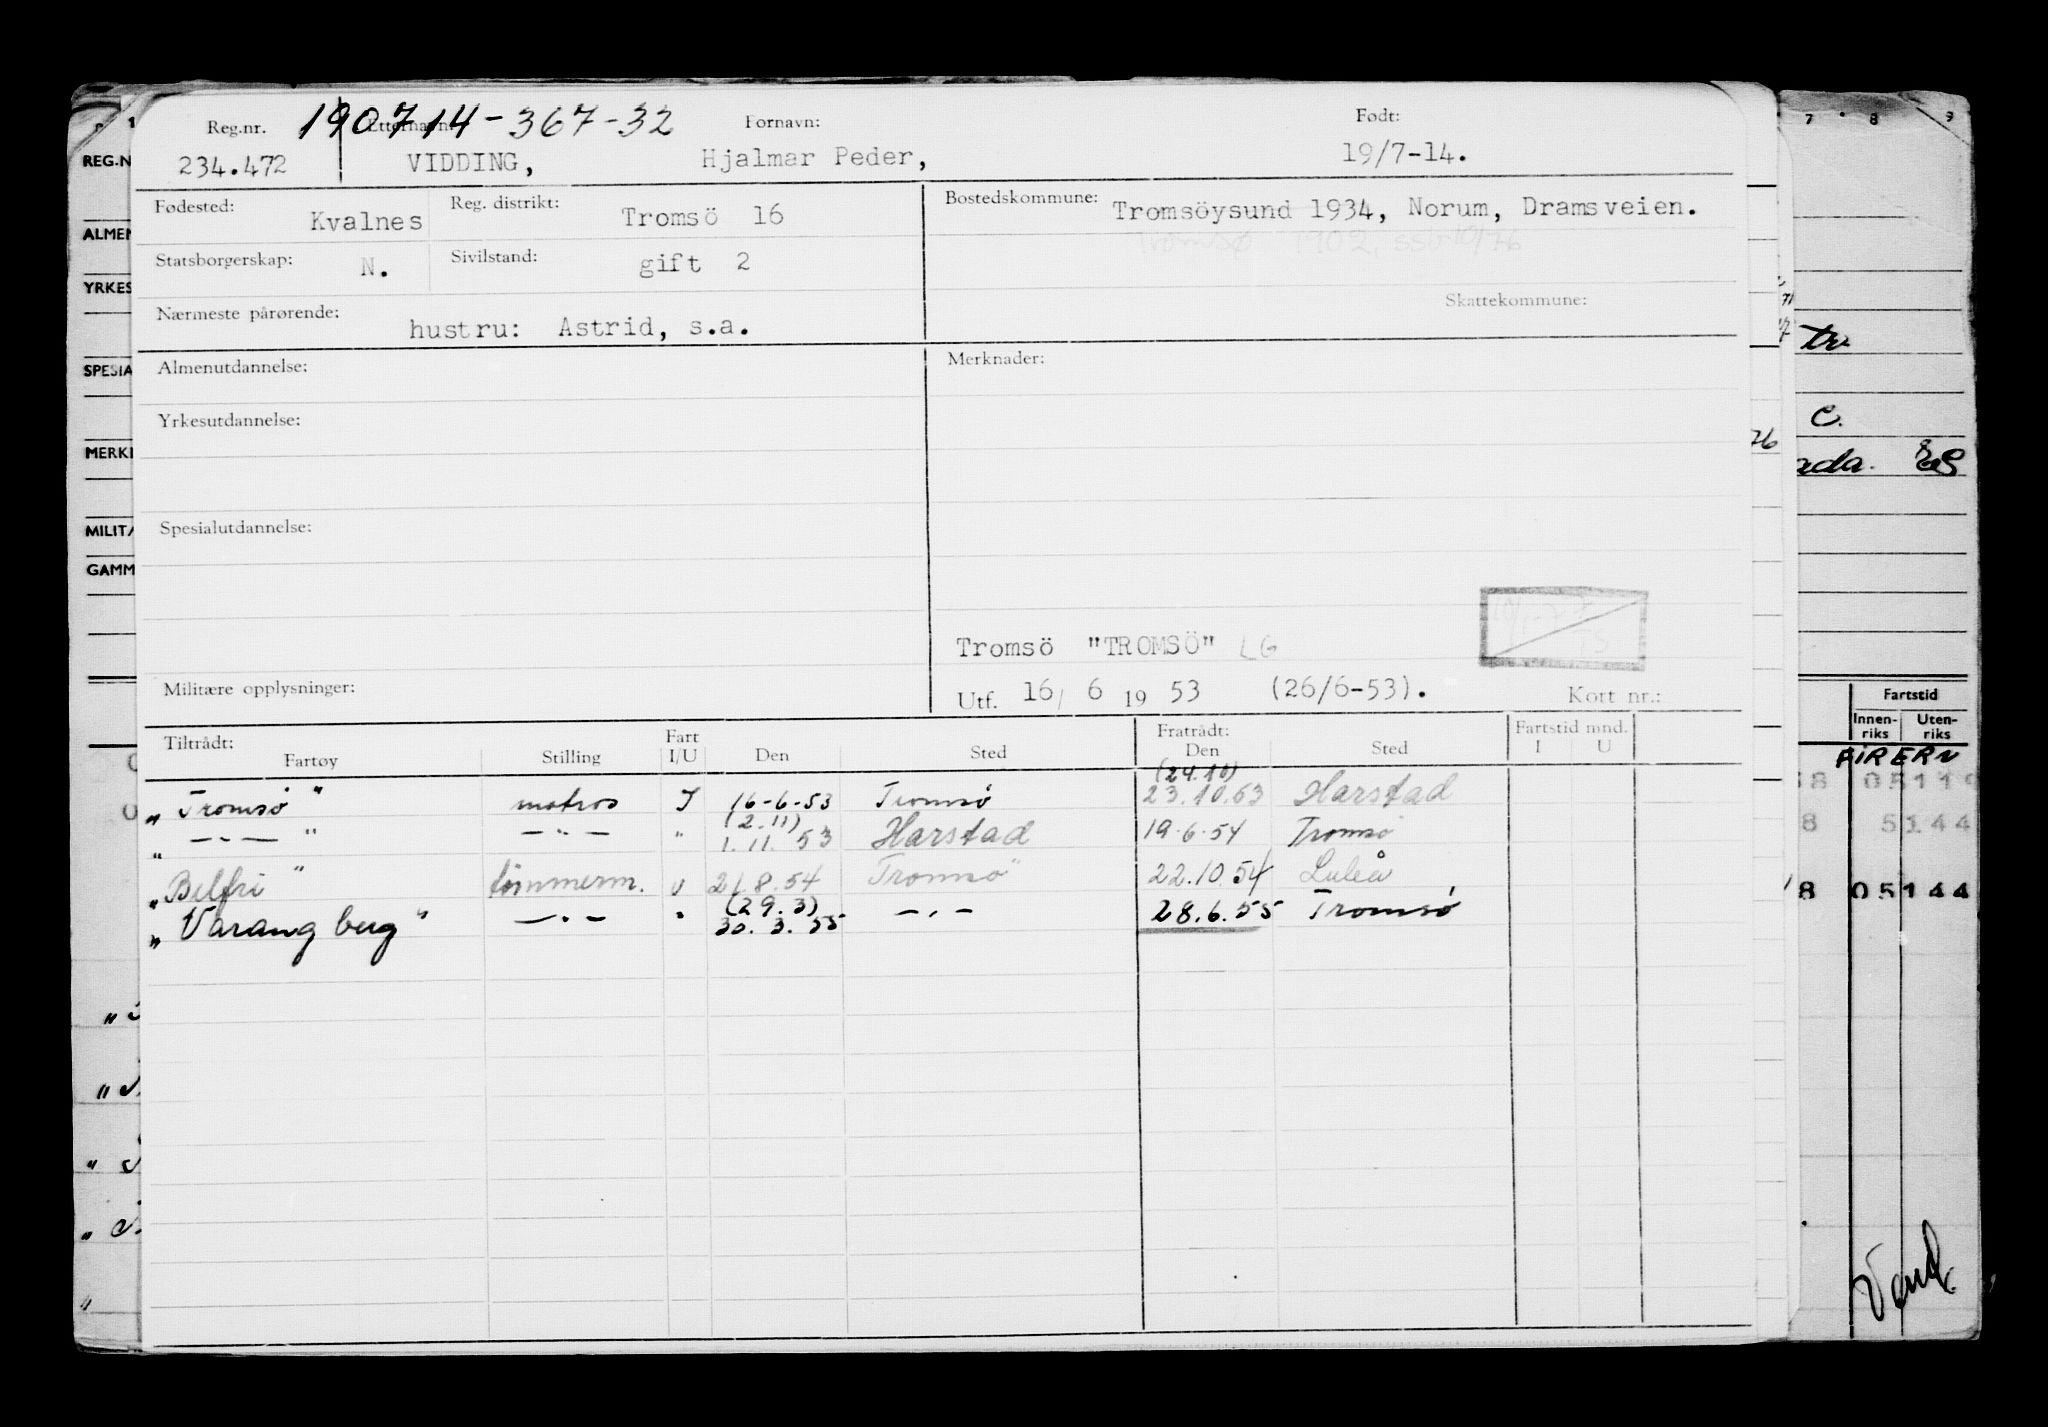 Reg.nr. 190714-367-32 Etternavn: Fornavn: Født:
234.472 VIDDING, Hjalmar Peder, 19/7-14.
Fødested: Kvalnes Reg. distrikt: Tromsö 16 Bostedskommune: Tromsöysund 1934, Norum, Dramsveien.
Tromsø 1902, 10/76
Statsborgerskap: N. Sivilstand: gift 2
Skattekommune:
Nærmeste pårørende: hustru: Astrid, s.a.
Almenutdannelse: Merknader:
Yrkesutdannelse:
Spesialutdannelse:
Tromsö "TROMSÖ" LG
Militære opplysninger: Utf. 16/ 6 19 53 (26/6-53). Kort nr.:
Tiltrådt: Fart Fratrådt: Fartstid mnd.
Fartøy Stilling I/U Den Sted Den Sted I U
(24.10)
„ Tromsö " matros I 16-6-53 Tromsö 23.10.53 Harstad
(2.11)
„ — " — " — " — " 1.11.53 Harstad 19.6.54 Tromsö
„ Belfri " tömmerm. U 21.8.54 Tromsö 22.10.54 Luleå
(29.3)
„ Varangberg " — " — " 30.3.55 — " — 28.6.55 Tromsö
REG.N
ALMEN
YRKES
SPESIA
MERK
MILIT
GAMM
7 8 9
tr
C.
76
Fartstid
Innen-riks Uten-riks
8 05144
8 5144
Vend.